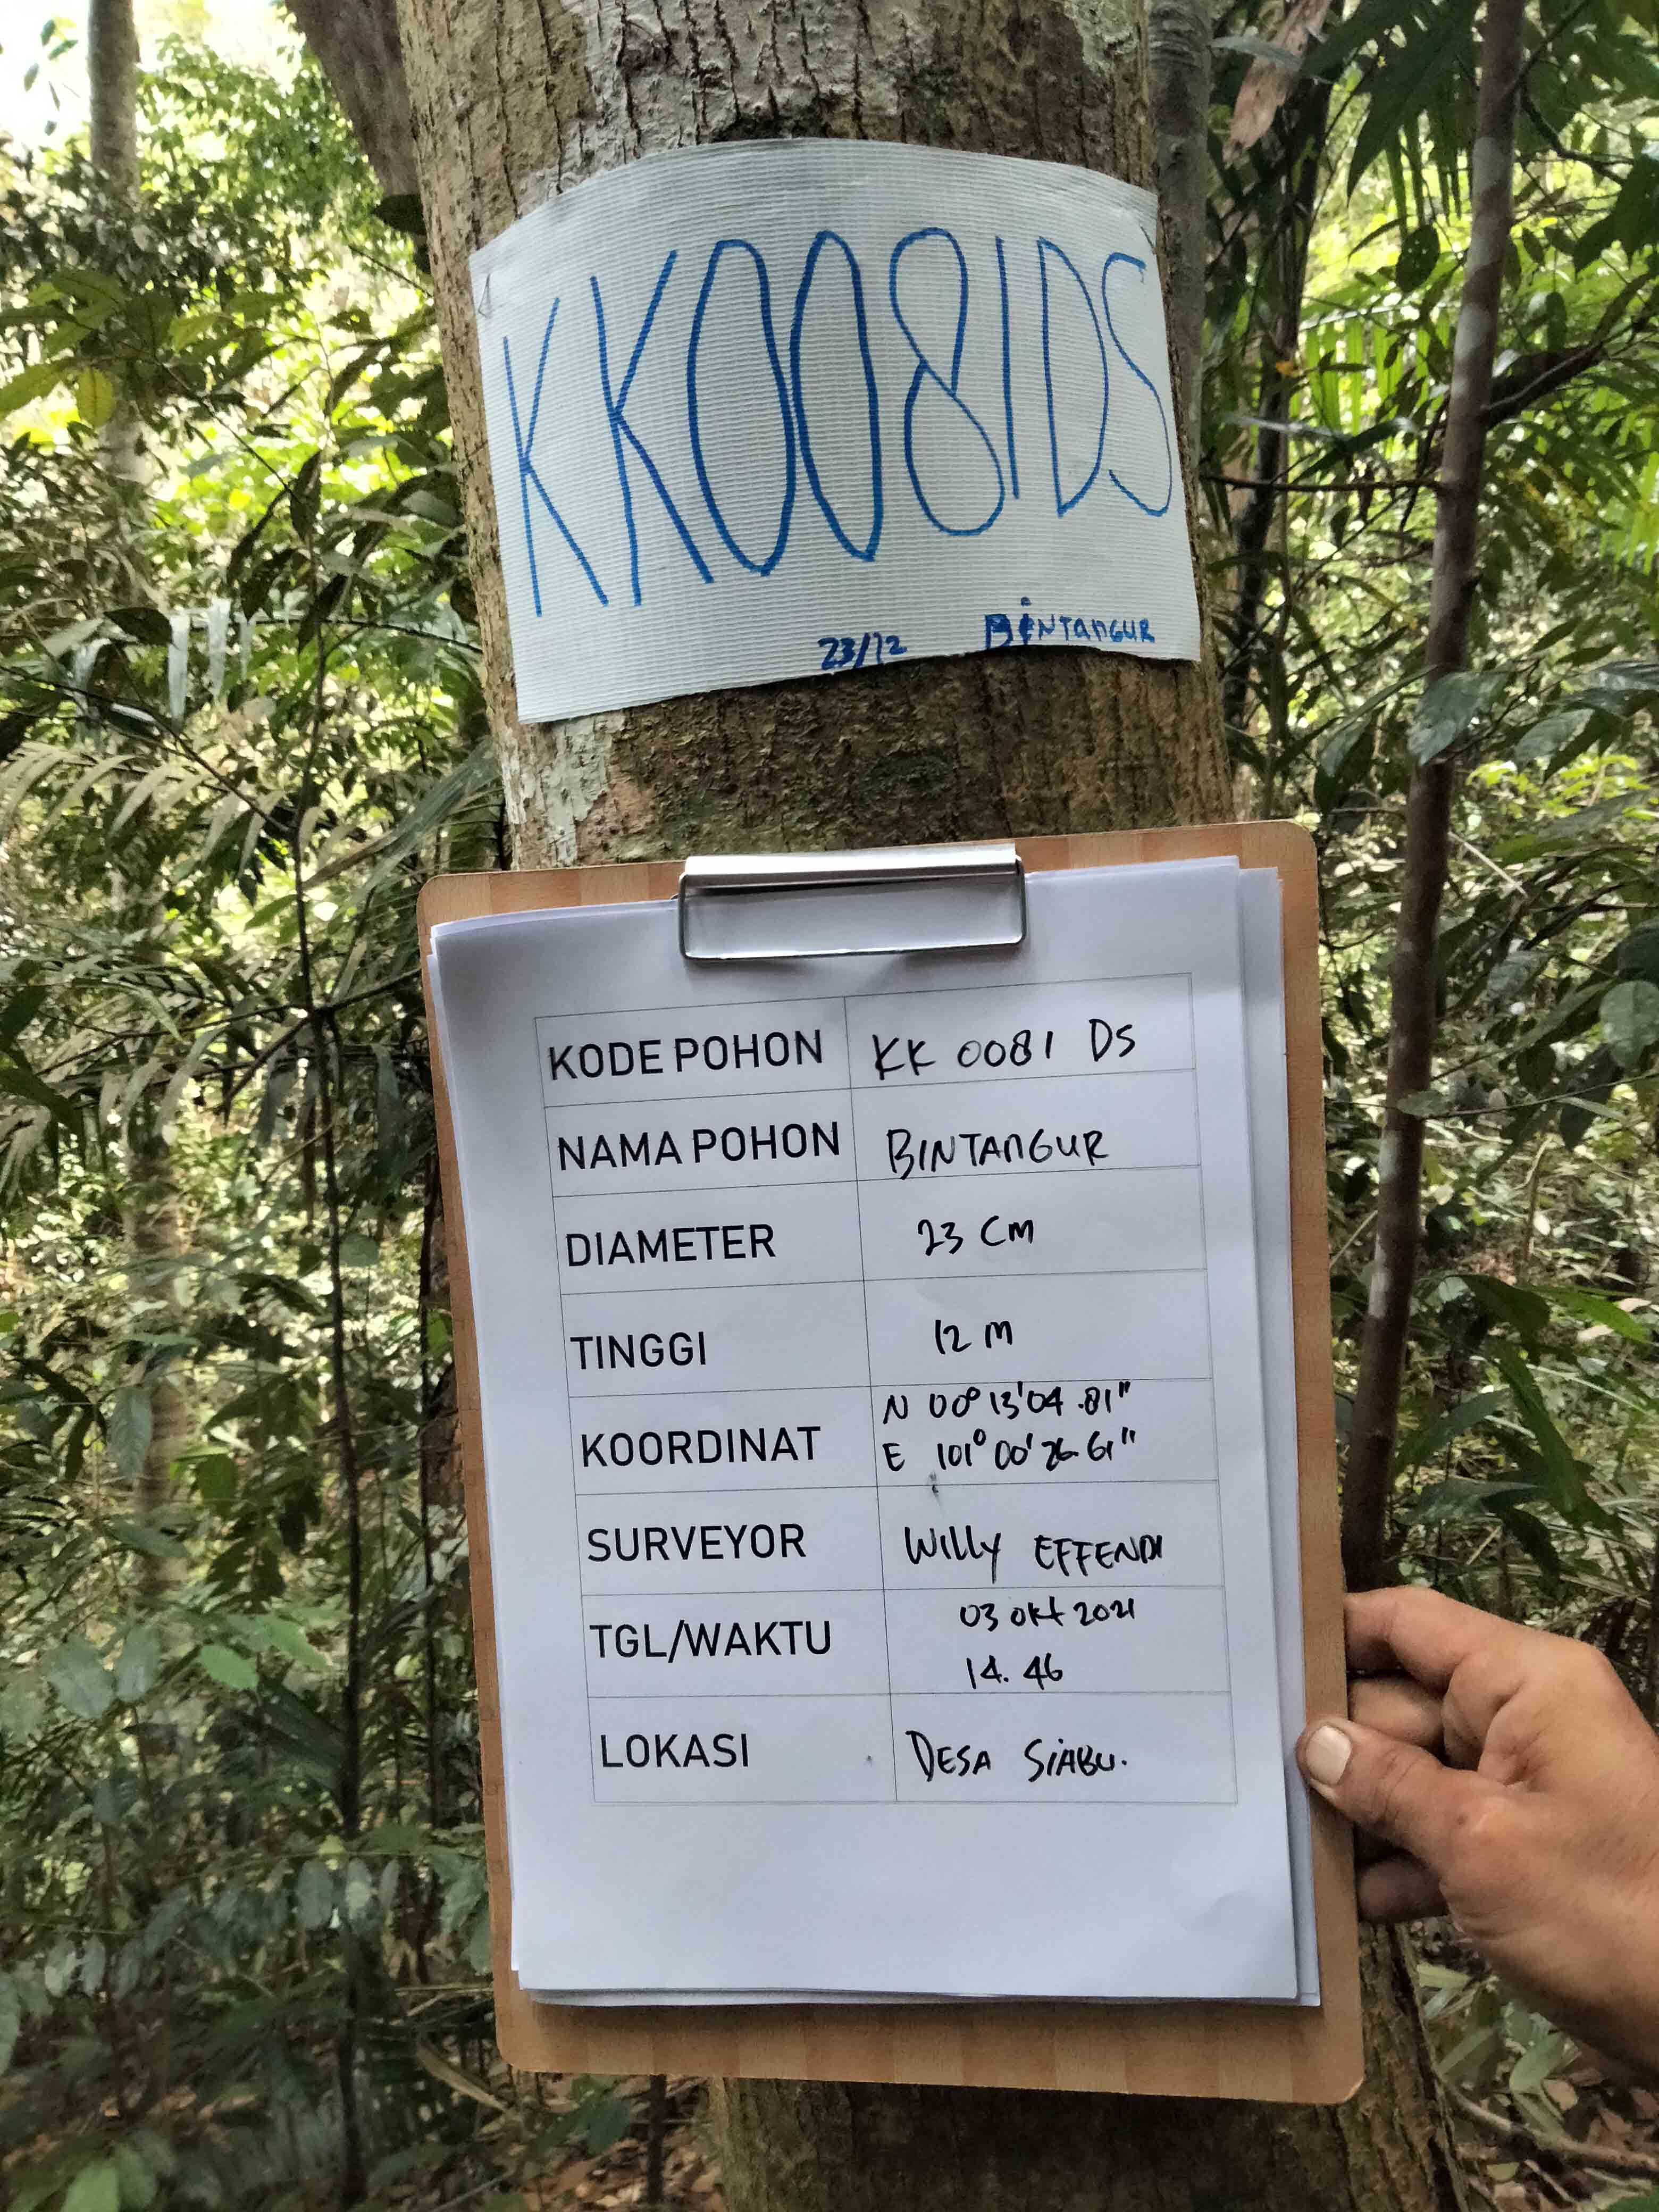 KK0081DS
23/12 BiNTanGUR
KODE POHON KK 0081 DS
NAMA POHON BINTANGUR
DIAMETER 23 CM
TINGGI 12 M
KOORDINAT N 00° 13' 04.81"
E 101° 00' 26.61"
SURVEYOR Willy EFFENDI
TGL/WAKTU 03 Okt 2021
14.46
LOKASI DESA SiABU.